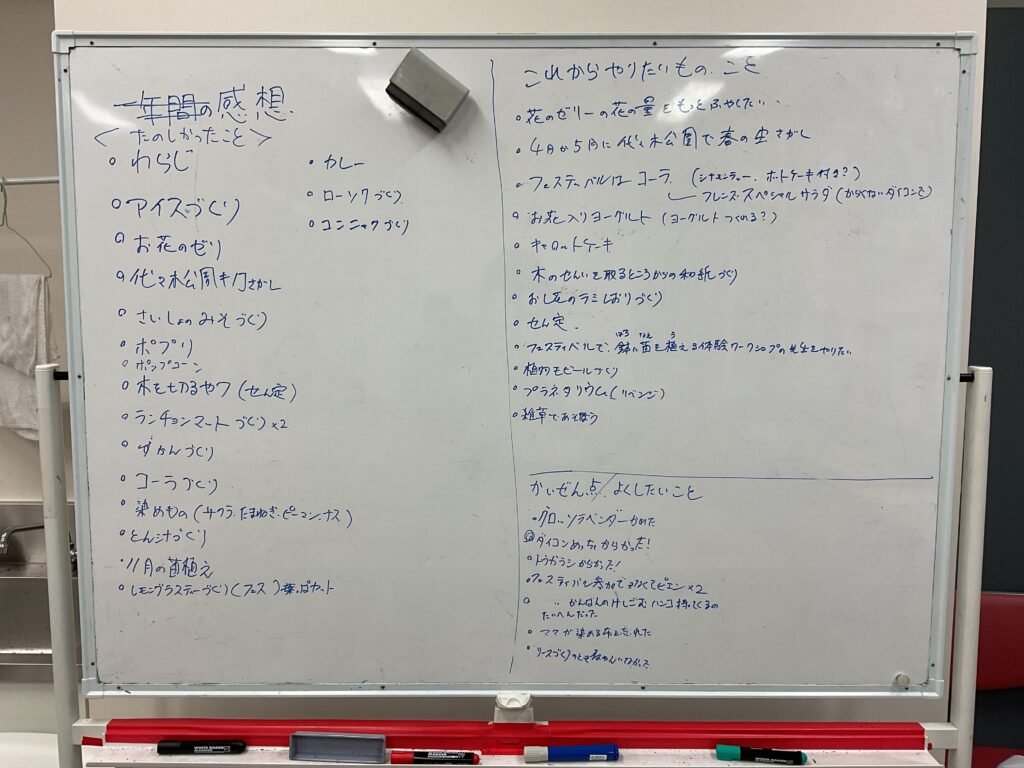 一年間の感想
<たのしかったこと>
○ わらじ
○ アイスづくり
○ お花のゼリ
○ 代々木公園キノコさがし
○ さいしょのみそづくり
○ ポプリ
○ ポップコーン
○ 木を切るやつ (せん定)
○ ランチョンマットづくり ×2
○ ずかんづくり
○ コーラづくり
○ 染めもの (サクラ・たまねぎ・ピーマン・ナス)
○ とん汁づくり
・11月の苗植え
○ レモングラスティーづくり (フェス) 葉っぱカット
・カレー
○ ローソクづくり
○ コンニャクづくり
これからやりたいもの こと
○ 花のゼリーの花の量をもっとふやしたい
○ 4月か5月に代々木公園で春の虫さがし
○ フェスティーバルはコーラ (シナモンティー、ホットケーキ付き?)
フレンズ・スペシャルサラダ (からくないダイコンで)
○ お花入りヨーグルト (ヨーグルトつくれる?)
○ キャロットケーキ
○ 木のせんいを取るところからの和紙づくり
○ おし花のラミしおりづくり
○ せん定
○ フェスティバルで、鉢に苗を植える体験ワークショップの先生をやりたい
はち なえ う
○ 植物モビールづくり
○ プラネタリウム (リベンジ)
○ 雑草であそぼう
かいぜん点/よくしたいこと
○ ラベンダーかれた
○ ダイコンめっちゃからかった!
○ トウガラシからかった!
○ フェスティバル参加できなくてピエン ×2
○ 〃 かんばんのけしごむハンコ持ってくるの
たいへんだった
○ ママが染める布を忘れた
○ リースづくりのとき
WHITE BOARD MARKER